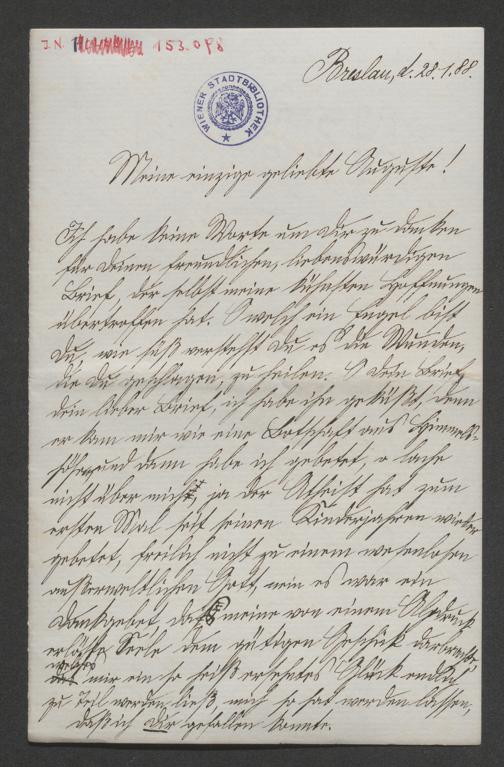 J.N. 153.098
WIENER STADTBIBLIOTHEK
Breslau, d. 28.1.88.
Meine einzige geliebte Auguste!
Ich habe keine Worte um dir zu danken
für deinen freundlichen, liebenswürdigen
Brief, der selbst meine kühnsten Hoffnungen
übertroffen hat. O welch ein Engel bist
du, wie süß verstehst du es die Wunden,
die du geschlagen, zu heilen. O dein Brief,
dein lieber Brief, ich habe ihn geküßt, denn
er kam mir wie eine Botschaft aus Himmels-
höhen und dann habe ich gebetet, o lache
nicht über mich, ja der Atheist hat zum
ersten Mal seit seinen Kinderjahren wieder
gebetet, freilich nicht zu einem wesenlosen
außerweltlichen Gott, nein es war ein
Dankgebet, das meine von einem Alpdruck
erlöste Seele dem gütigen Geschick darbrachte,
welches mir ein so heiß ersehntes Glück endlich
zu Teil werden ließ, mich so hat werden lassen,
daß ich dir gefallen konnte.